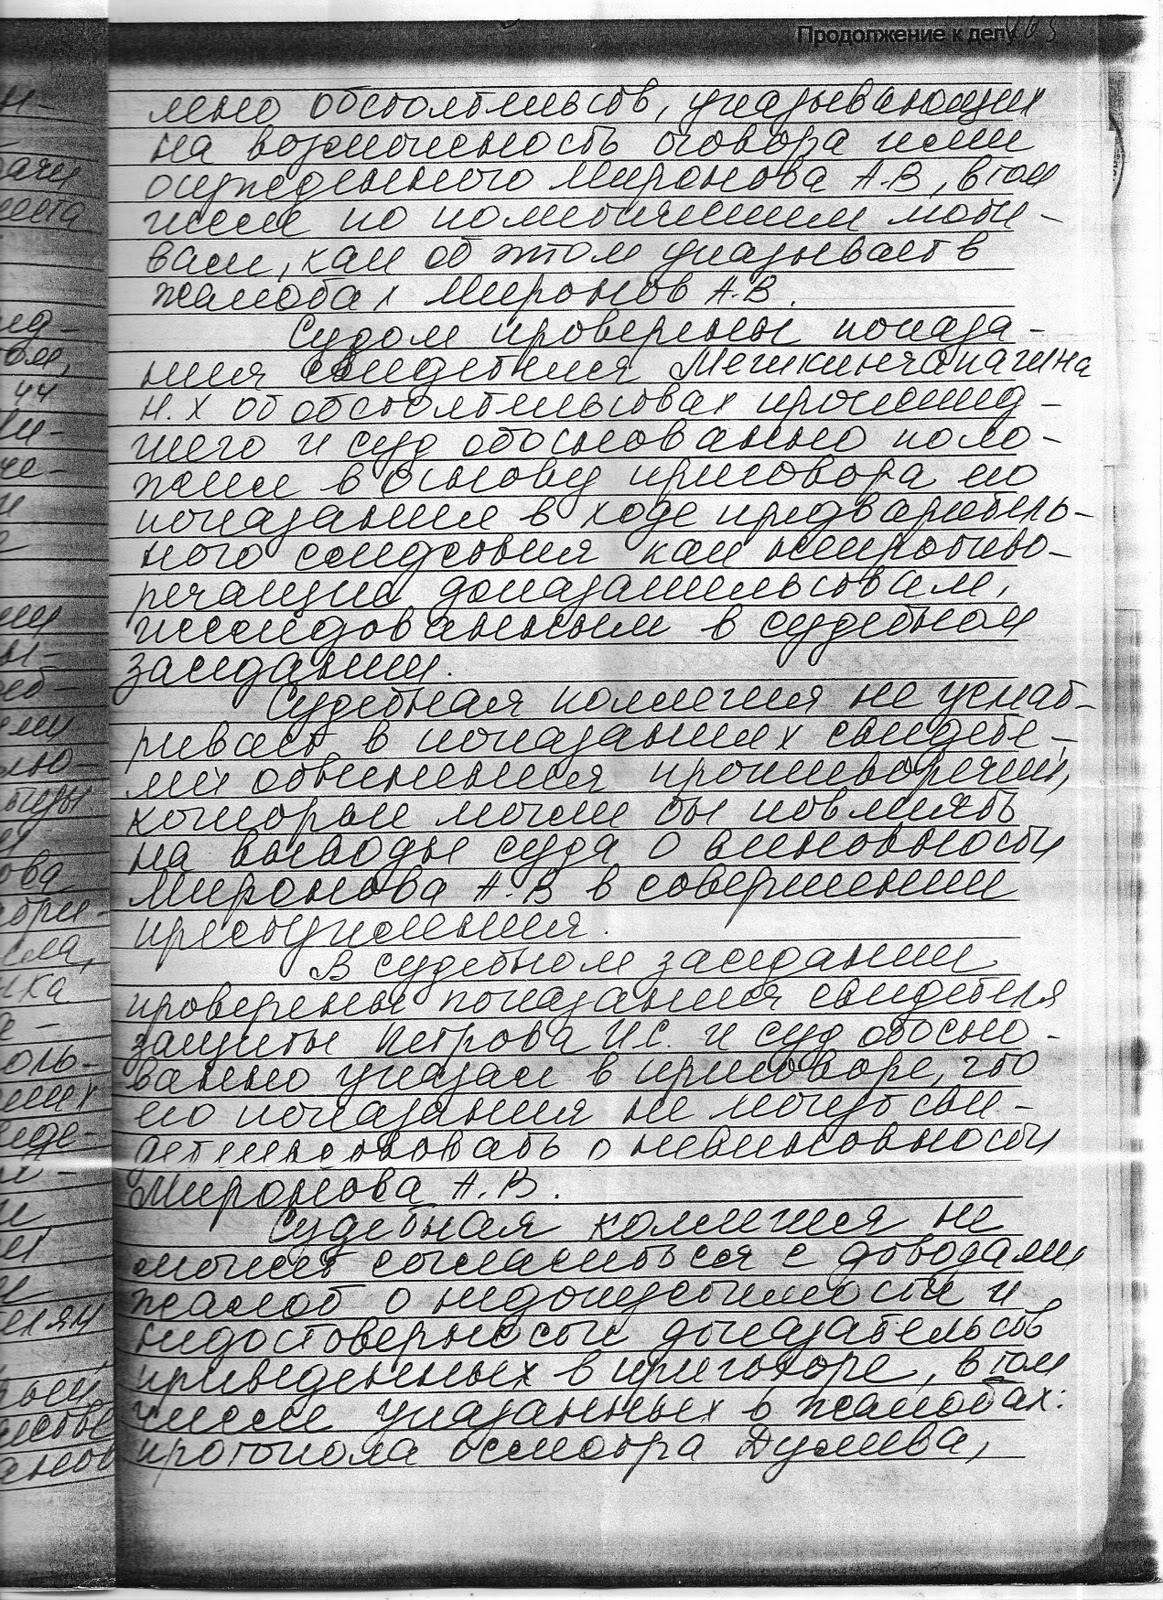 Продолжение к делу
лено обстоятельств, указывающих
на возможность оговора ими
осужденного Миронова А.В, в том
числе по политическим моти-
вам, как об этом указывает в
жалобах Миронов А.В.
Судом проверены показа-
ния свидетеля
н.х об обстоятельствах происшед-
шего и суд обоснованно поло-
жил в основу приговора его
показания в ходе предваритель-
ного следствия как непротиво-
речащие доказательствам,
исследованным в судебном
заседании.
Судебная коллегия не усмат-
ривает в показаниях свидете-
лей обвинения противоречий,
которые могли бы повлиять
на выводы суда о виновности
Миронова А.В в совершении
преступления.
В судебном заседании
проверены показания свидетеля
защиты Петрова И.С. и суд обосно-
ванно указал в приговоре, что
его показания не могут сви-
детельствовать о невиновности
Миронова А.В.
Судебная коллегия не
может согласиться с доводами
жалоб о недопустимости и
недостоверности доказательств
приведенных в приговоре, в том
числе указанных в жалобах:
протокола осмотра